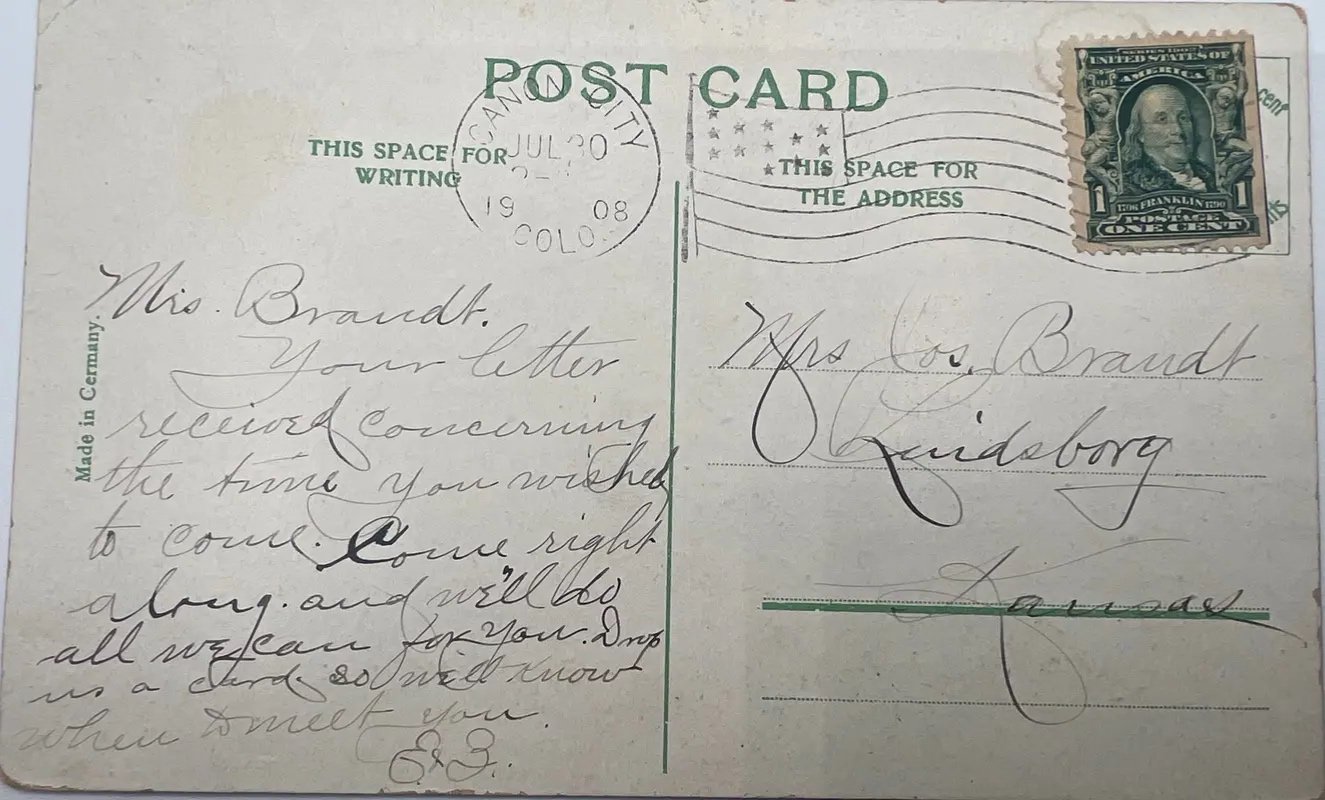 POST CARD
THIS SPACE FOR
WRITING
THIS SPACE FOR
THE ADDRESS
CANON CITY
JUL 30
19 08
COLO.
SERIES 1902
UNITED STATES OF
AMERICA
1 1706 FRANKLIN 1790 1
POSTAGE
ONE CENT
cent
Made in Germany.
Mrs. Brandt.
Your letter
received concerning
the time you wished
to come. Come right
along. and we'll do
all we can for you. Drop
us a card so we'll know
when to meet you.
Mrs Jos. Brandt
Lindsborg
Kansas